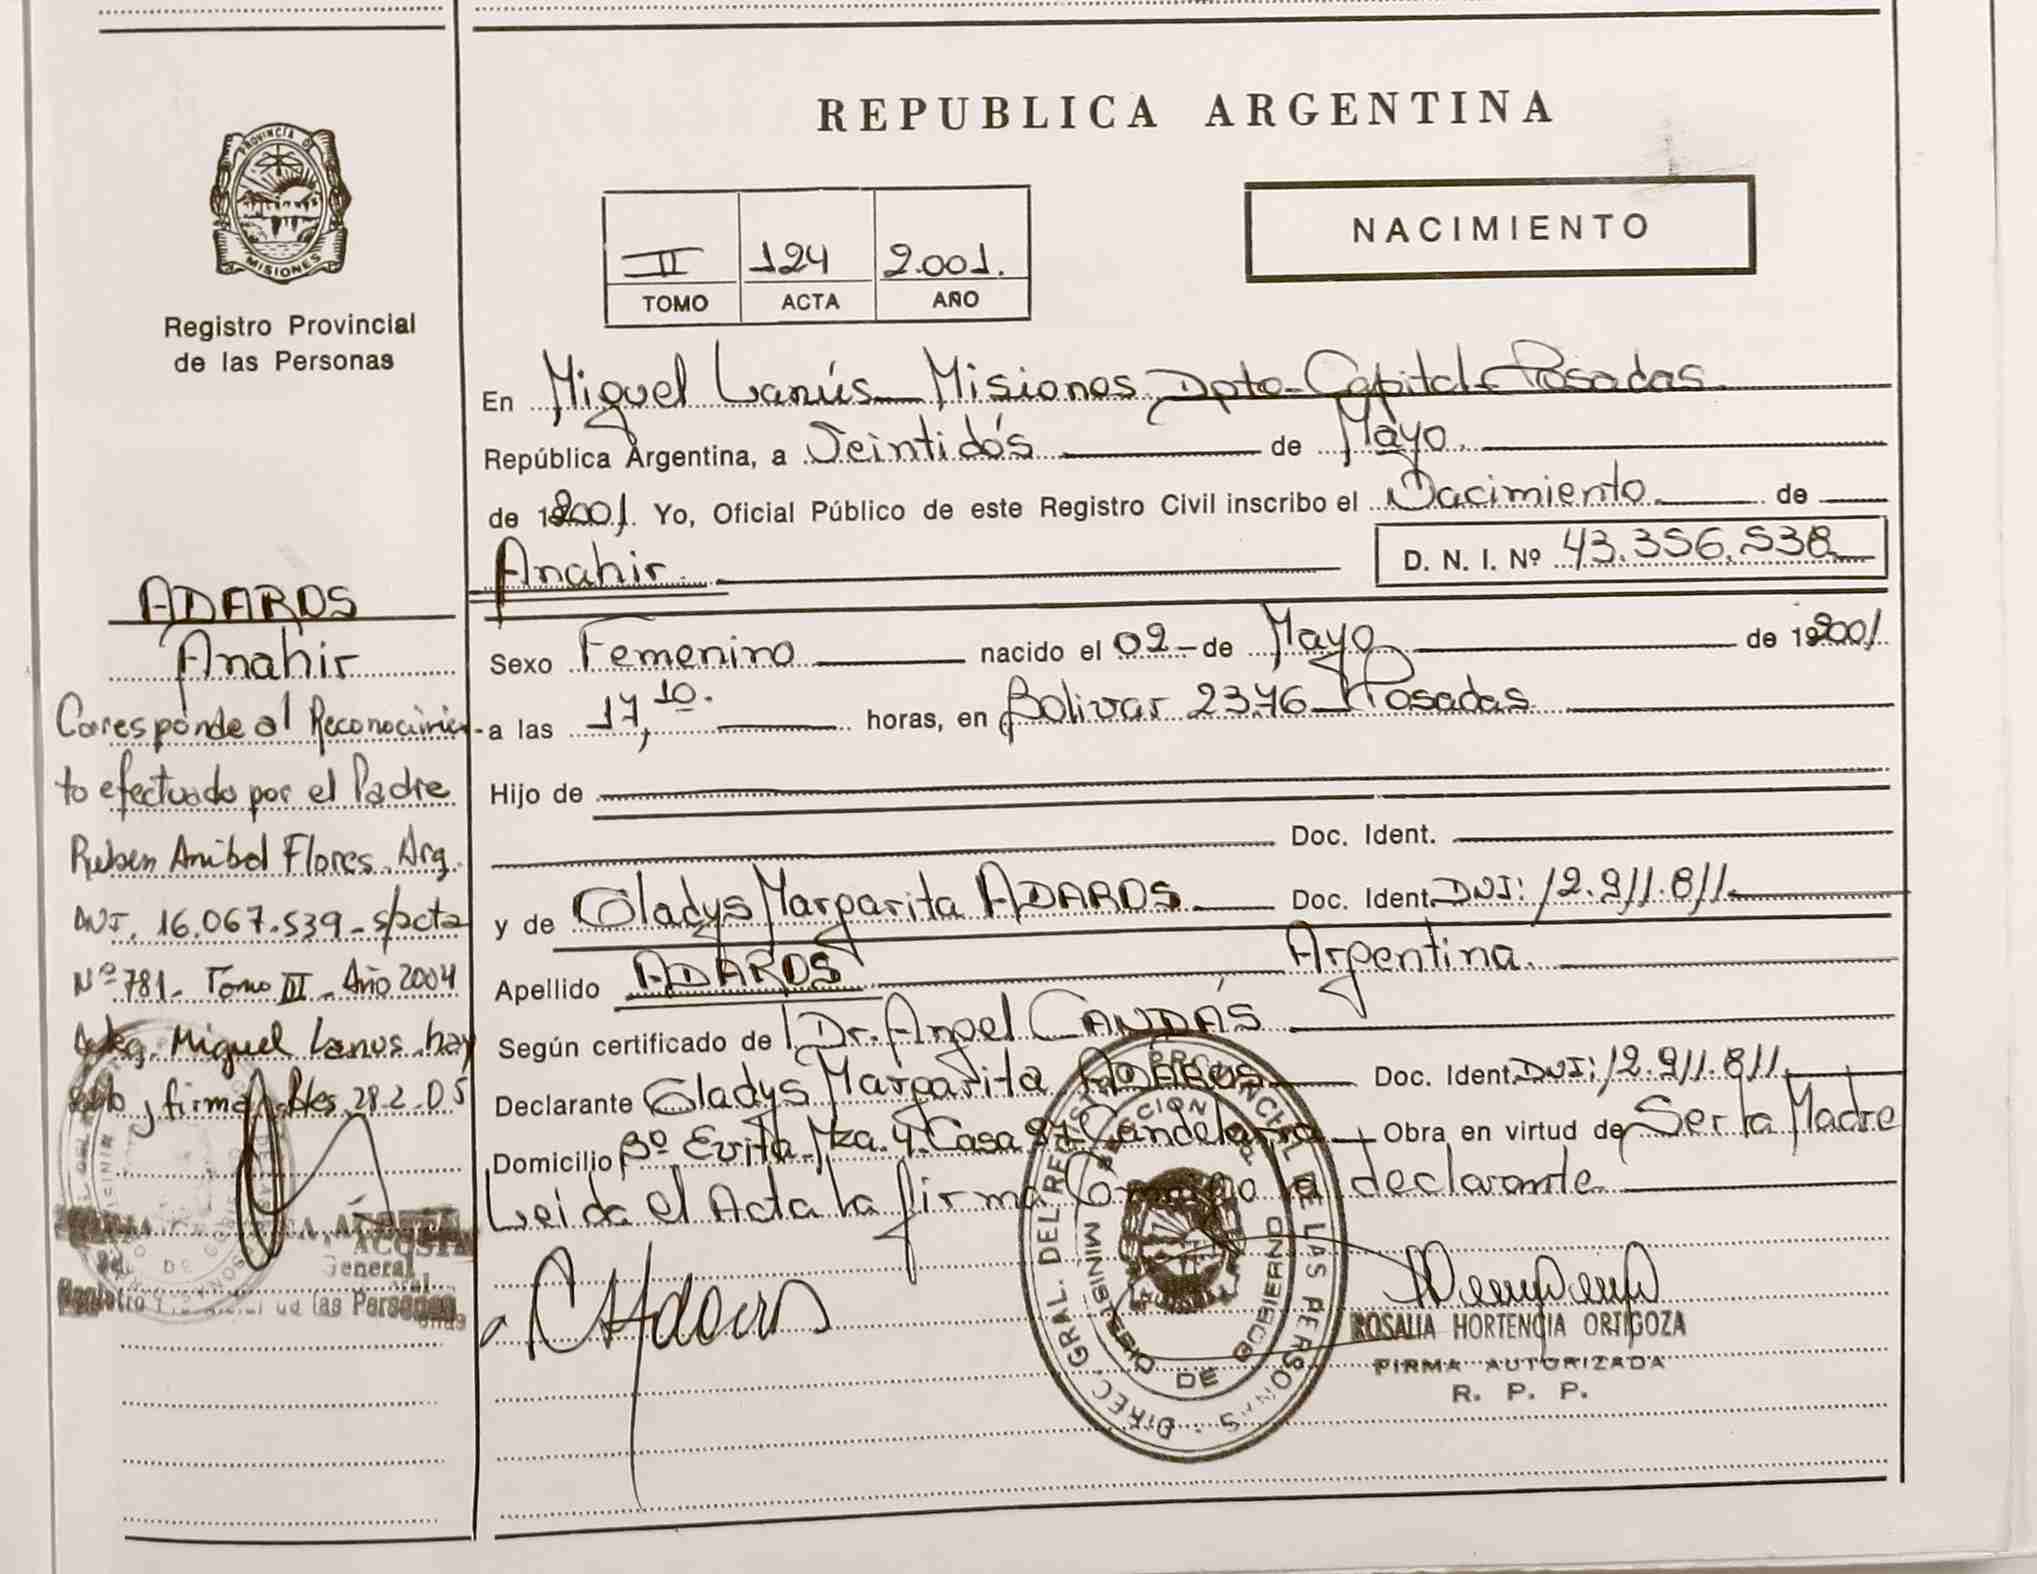 REPUBLICA ARGENTINA
PROVINCIA DE
MISIONES
Registro Provincial
de las Personas
II 124 2.001.
TOMO ACTA AÑO
NACIMIENTO
En Miguel Lanús Misiones Dpto. Capital Posadas
República Argentina, a Veintidós de Mayo
de 2001. Yo, Oficial Público de este Registro Civil inscribo el Nacimiento de
Anahir D. N. I. Nº 43.356.538
Sexo Femenino nacido el 02 de Mayo de 2001
a las 17,10. horas, en Bolivar 2376 Posadas
Hijo de
Doc. Ident.
y de Gladys Margarita ADAROS Doc. Ident. DNI: 12.911.811
Apellido ADAROS Argentina.
Según certificado de Dr. Angel CANDÁS
Declarante Gladys Margarita ADAROS Doc. Ident. DNI: 12.911.811
Domicilio Bº Evita Mza. 4 Casa Candelaria Obra en virtud de Ser la Madre
Leida el Acta la firma Conmigo la declarante
ADAROS
Anahir
Corresponde al Reconocimien-
to efectuado por el Padre
Ruben Anibal Flores. Arg.
DNI. 16.067.539 - s/acta
Nº 781 - Tomo III - Año 2004
Miguel Lanus. hay
sello y firma. 28.2.05
ACOSTA
General
Registro de las Personas
DIREC. GRAL. DEL REGISTRO PROVINCIAL DE LAS PERSONAS
MINISTERIO DE GOBIERNO
ROSALIA HORTENCIA ORTIGOZA
FIRMA AUTORIZADA
R. P. P.